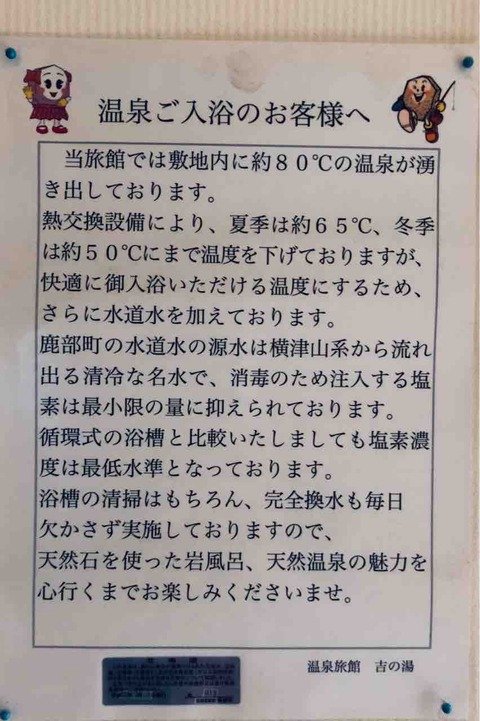 温泉ご入浴のお客様へ
当旅館では敷地内に約８０℃の温泉が湧
き出しております。
熱交換設備により、夏季は約６５℃、冬季
は約５０℃にまで温度を下げておりますが、
快適に御入浴いただける温度にするため、
さらに水道水を加えております。
鹿部町の水道水の源水は横津山系から流れ
出る清冷な名水で、消毒のため注入する塩
素は最小限の量に抑えられております。
循環式の浴槽と比較いたしましても塩素濃
度は最低水準となっております。
浴槽の清掃はもちろん、完全換水も毎日
欠かさず実施しておりますので、
天然石を使った岩風呂、天然温泉の魅力を
心行くまでお楽しみくださいませ。
温泉旅館　吉の湯
北海道